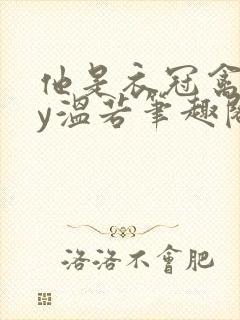 他是衣冠禽
y溫若筆趣閣
洛洛不會肥